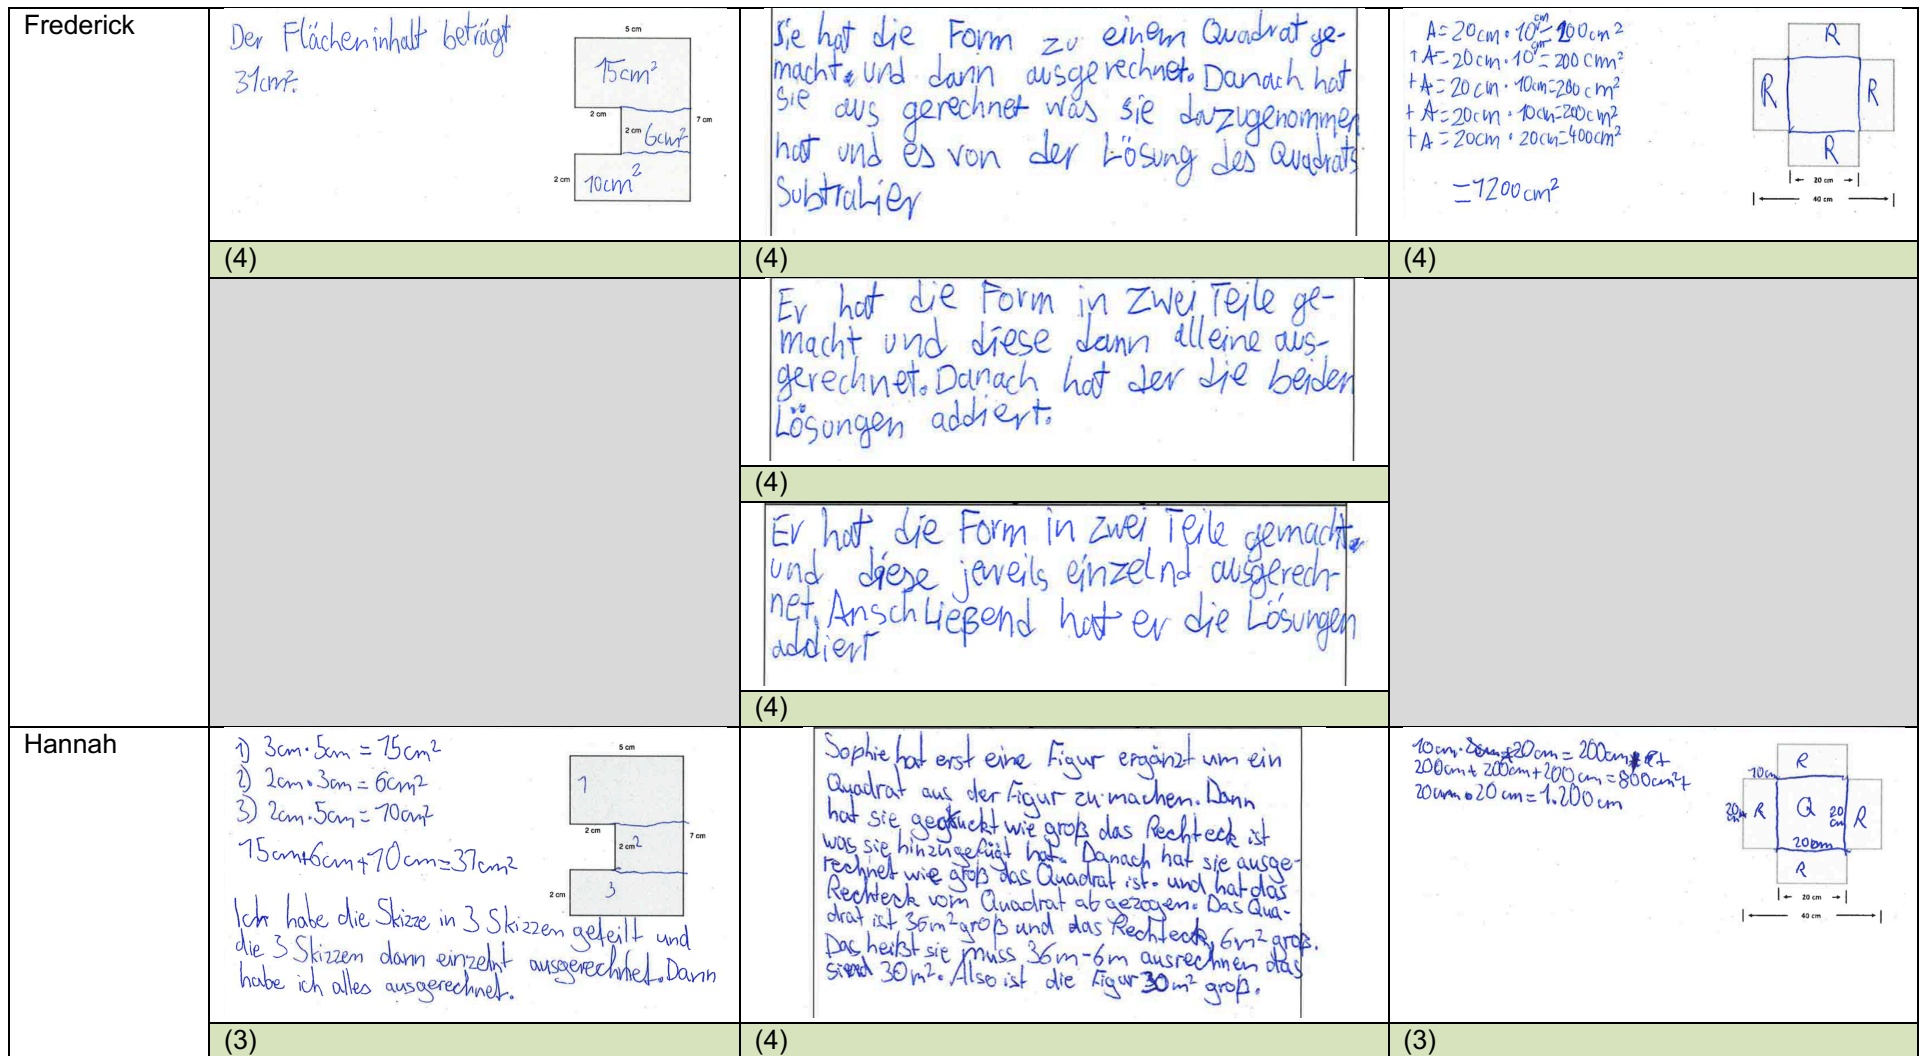 Frederick
Der Flächeninhalt beträgt
31cm².
5 cm
15cm²
2 cm
7 cm
2 cm 6cm²
2 cm
10cm²
(4)
Sie hat die Form zu einem Quadrat ge-
macht. und dann ausgerechnet. Danach hat
sie aus gerechnet was sie dazugenommen
hat und es von der Lösung des Quadrats
Substrahier
(4)
A=20cm·10cm=200cm²
+A=20cm·10cm=200cm²
+A=20cm·10cm=200cm²
+A=20cm·10cm=200cm²
+A=20cm·20cm=400cm²
=1200cm²
R
R
R
R
20 cm
40 cm
(4)
Er hat die Form in zwei Teile ge-
macht und diese dann alleine aus-
gerechnet. Danach hat der die beiden
Lösungen addiert.
(4)
Er hat die Form in zwei Teile gemacht.
und diese jeweils einzelnd ausgerech-
net. Anschließend hat er die Lösungen
addiert
(4)
Hannah
1) 3cm·5cm=15cm²
2) 2cm·3cm=6cm²
3) 2cm·5cm=10cm²
15cm+6cm+10cm=31cm²
Ich habe die Skizze in 3 Skizzen geteilt und
die 3 Skizzen dann einzelnt ausgerechnet. Dann
habe ich alles ausgerechnet.
5 cm
1
2 cm
7 cm
2 cm 2
2 cm
3
(3)
Sophie hat erst eine Figur ergänzt um ein
Quadrat aus der Figur zu machen. Dann
hat sie geguckt wie groß das Rechteck ist
was sie hinzugefügt hat. Danach hat sie ausge-
rechnet wie groß das Quadrat ist. und hat das
Rechteck vom Quadrat abgezogen. Das Qua-
drat ist 36m² groß und das Rechteck, 6m² groß.
Das heißt sie muss 36m-6m ausrechnen das
sind 30m². Also ist die Figur 30m² groß.
(4)
10cm· 20cm=200cm
200cm+200cm+200cm=800cm²+
20cm·20cm=1.200cm
R
10cm
20cm R
Q
20cm
R
20cm
R
20 cm
40 cm
(3)